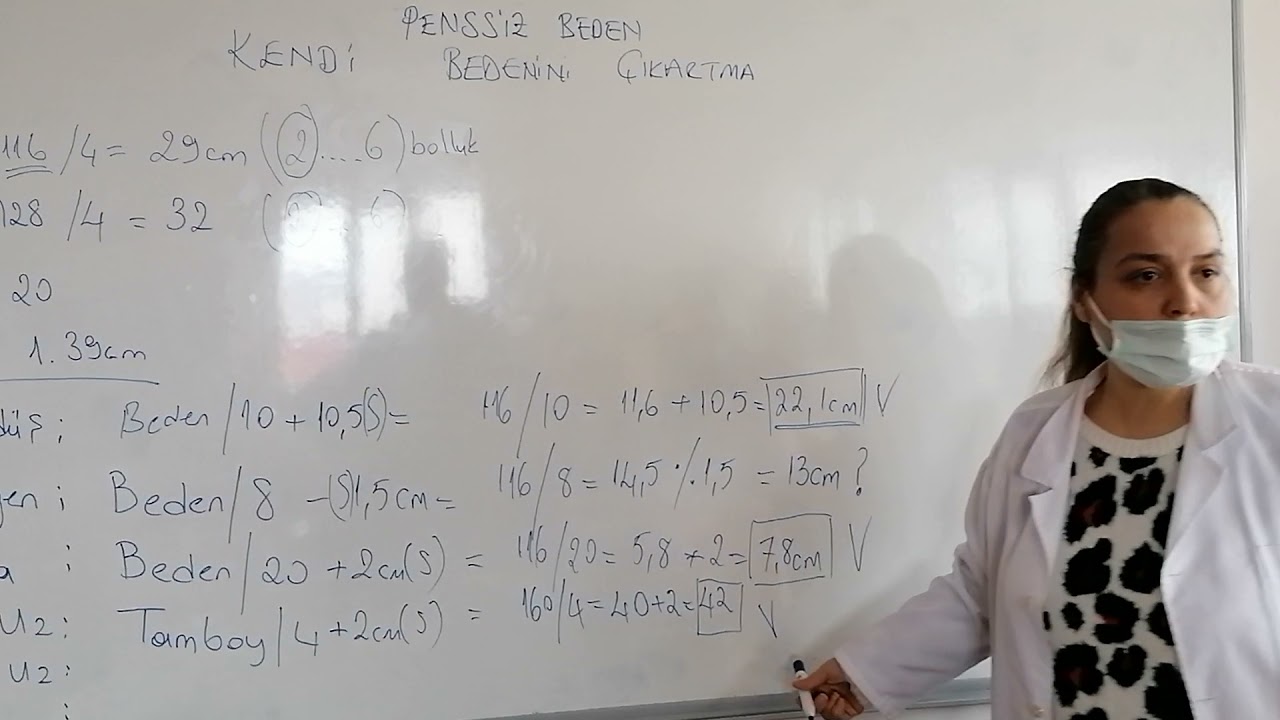 PENSSİZ BEDEN
KENDİ BEDENİNİ ÇIKARTMA
116 /4 = 29cm (2....6) bolluk
128 /4 = 32 (2...6)
20
1.39cm
düş; Beden /10 + 10,5(S)= 116/10 = 11,6 + 10,5 = 22,1cm V
yen; Beden/8 -(S)1,5cm= 116/8 = 14,5 ٪ 1,5 = 13cm ?
a : Beden/20 +2cm(S) = 116/20 = 5,8 + 2 = 7,8cm V
uz: Tamboy/4 +2cm(S) = 160/4 = 40+2 = 42 V
uz: